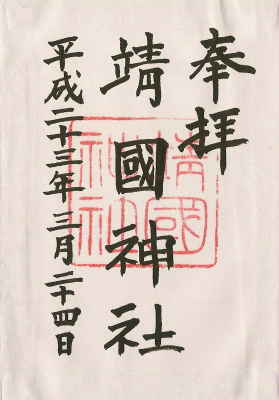 奉拝
靖國神社
平成二十三年三月二十四日
靖國
神社